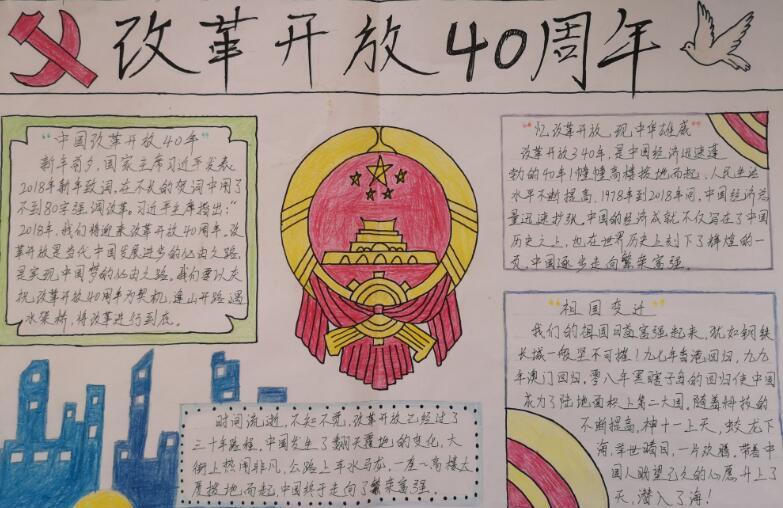 改革开放40周年
“中国改革开放40年”
新年前夕，国家主席习近平发表
2018年新年致词，在不长的贺词中用了
不到80字强调改革。习近平主席指出：“
2018年，我们将迎来改革开放40周年。改
革开放是当代中国发展进步的必由之路，
是实现中国梦的必由之路。我们要以庆
祝改革开放40周年为契机，逢山开路遇
水架桥，将改革进行到底。
“忆改革开放，现中华雄底”
改革开放340年，是中国经济迅速蓬
勃的40年！幢幢高楼拔地而起，人民生活
水平不断提高，1978年到2018年间，中国经济总
量迅速扩张，中国的经济成就，不仅写在了中国
历史之上，也在世界历史上刻下了辉煌的一
页，中国逐步走向繁荣富强。
“祖国变迁”
我们的祖国日益富强起来，犹如钢铁
长城一般坚不可摧！九七年香港回归，九九
年澳门回归，零八年黑瞎子岛的回归使中国
成为了陆地面积上第二大国，随着科技的
不断提高，神十一上天，蛟龙下
海，举世瞩目，一片欢腾，带着中
国人盼望已久的心愿，升上了
天，潜入了海！
时间流逝，不知不觉，改革开放已经过了
三十年路程，中国发生了翻天覆地的变化，大
街上热闹非凡，公路上车水马龙，一座一高楼大
厦拔地而起，中国终于走向了繁荣富强。